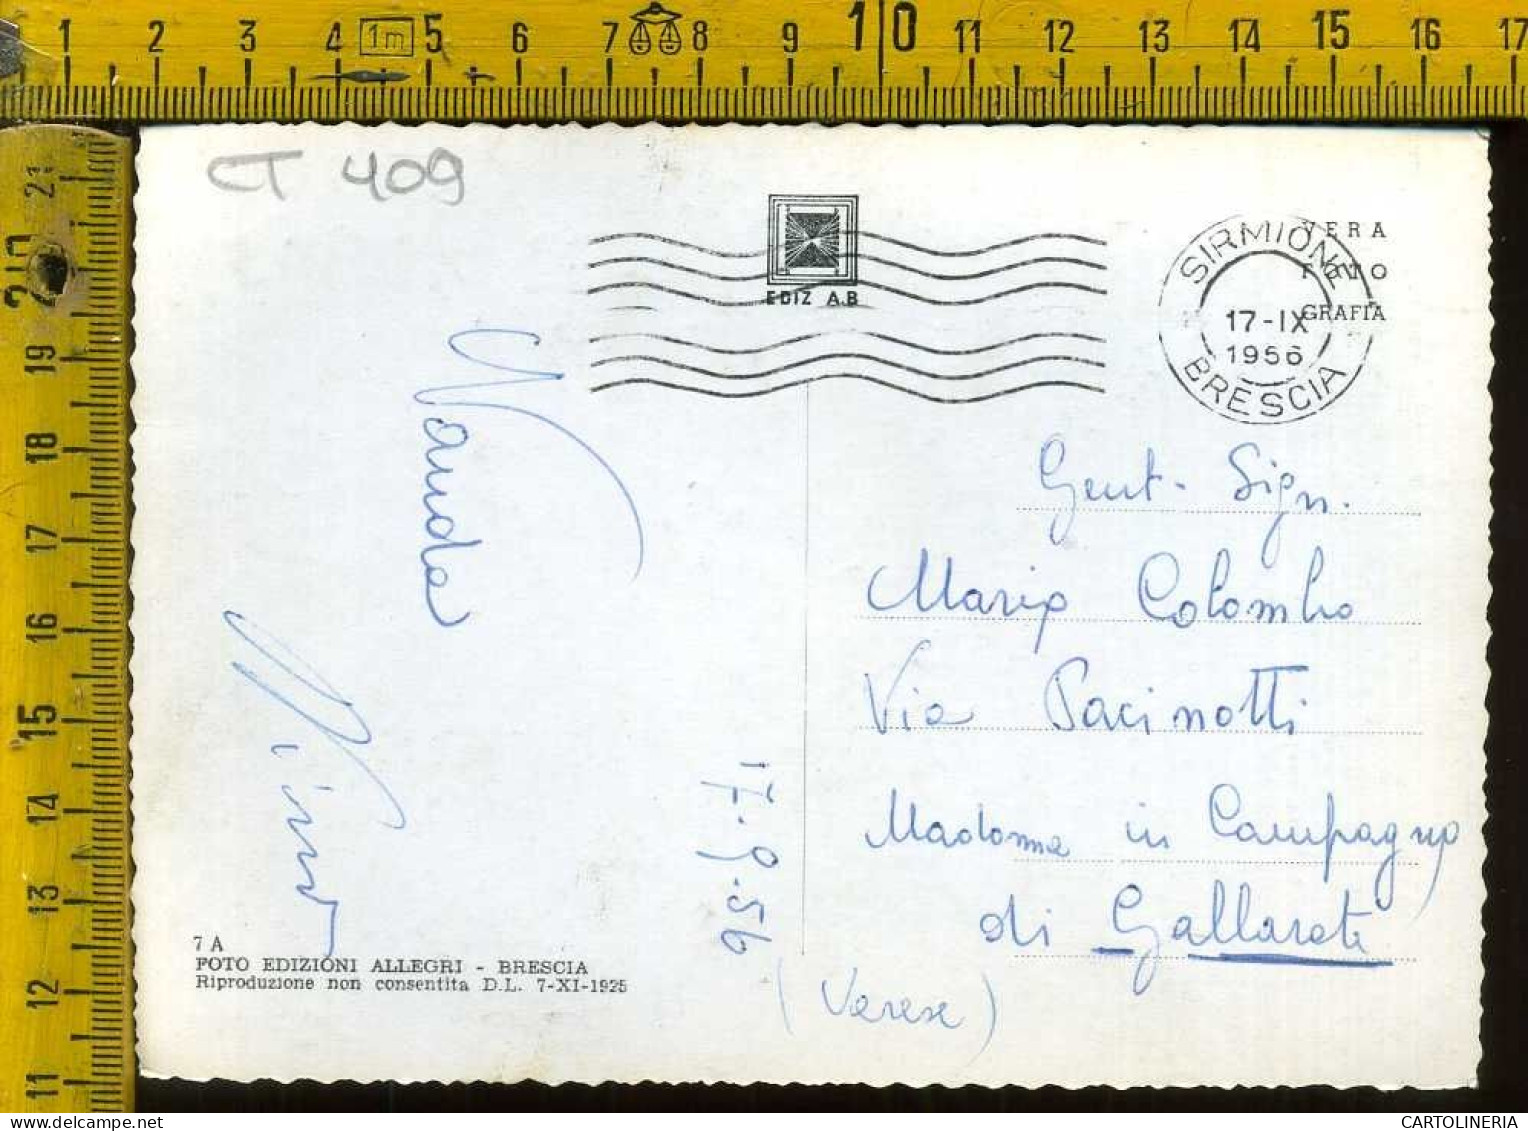 1 2 3 4 1m 5 6 7 8 9 10 11 12 13 14 15 16 17
21
20
19
18
17
16
15
14
13
12
11
CT 409
EDIZ A.B
VERA
FOTO
GRAFIA
SIRMIONE
17-IX
1956
BRESCIA
Wanda
Nino
17-9-56
Gent. Sign.
Maria Colombo
Via Pacinotti
Madonna in Campagna
di Gallarate
(Varese)
7 A
FOTO EDIZIONI ALLEGRI - BRESCIA
Riproduzione non consentita D.L. 7-XI-1925
CARTOLINERIA